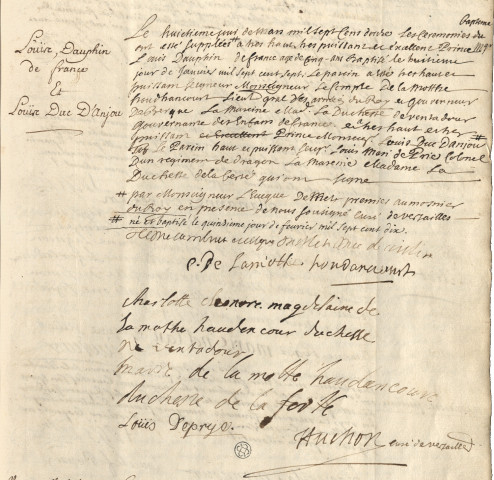 baptesme
Louise, Dauphin
de france
Et
Louise Duc D'Anjou
Le huitieme jour de Mars mil sept Cens douze les Ceremonies du
ont esté suppléés a tres haut, tres puissant et excellent Prince Mgr
Louis Dauphin de france agé de cinq ans baptisé le huitieme
jour de Janvier mil sept cent sept. Le parein a esté tres haut et
puissant seigneur Monseigneur Le Compte de la Motthe
houdhancourt Lieut. gnal des armées du Roy et Gouverneur
de Bergue La Mareine Mad. La Duchesse de ventadour
Gouvernante des Enfans de france. et tres haut et tres
puissant et Excellent Prince Monsieur Louis Duc d'anjou #
Le Parein haut et puissant seigr Louis Mari de Prie Colonel
D'un regiment de dragon La Mareine Madame La
Duchesse de la ferté qui ont signé
# par Monseigneur L'Evêque de Metz premier aumosnier
du Roy en presence de nous soussigné curé de versailles
# né et baptisé le quinzieme jour de fevrier mil sept cent dix.
C. De Lamothe houdancourt
charlotte eleonore magdelaine de
la mothe haudencour duchesse
de ventadour
marie de la motte haudancourt
duchesse de la ferté
Louis De prye
Huchon curé de versailles